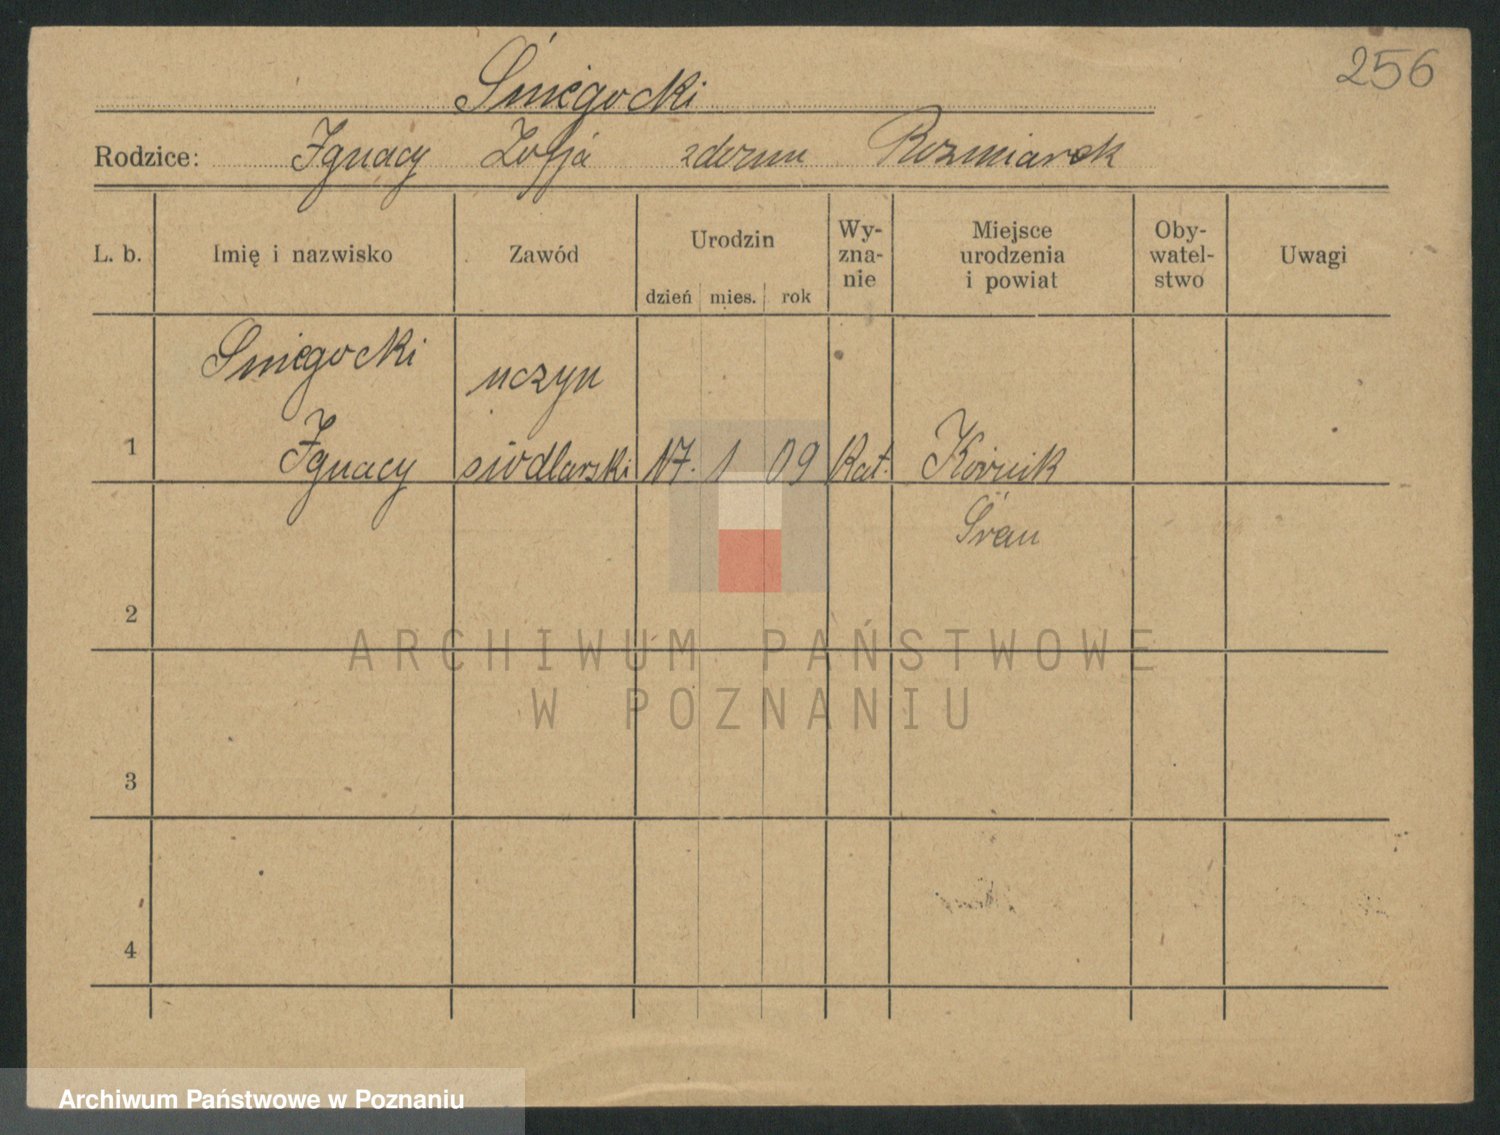 256
Śniegocki
Rodzice: Ignacy Zofja zdomu Rozmiarek
L. b. Imię i nazwisko Zawód Urodzin dzień mies. rok Wy-zna-nie Miejsce urodzenia i powiat Oby-watel-stwo Uwagi
Śniegocki uczyn
1 Ignacy siodlarski 17. 1 09 Kat. Kórnik
Śrem
2
ARCHIWUM PAŃSTWOWE
W POZNANIU
3
4
Archiwum Państwowe w Poznaniu